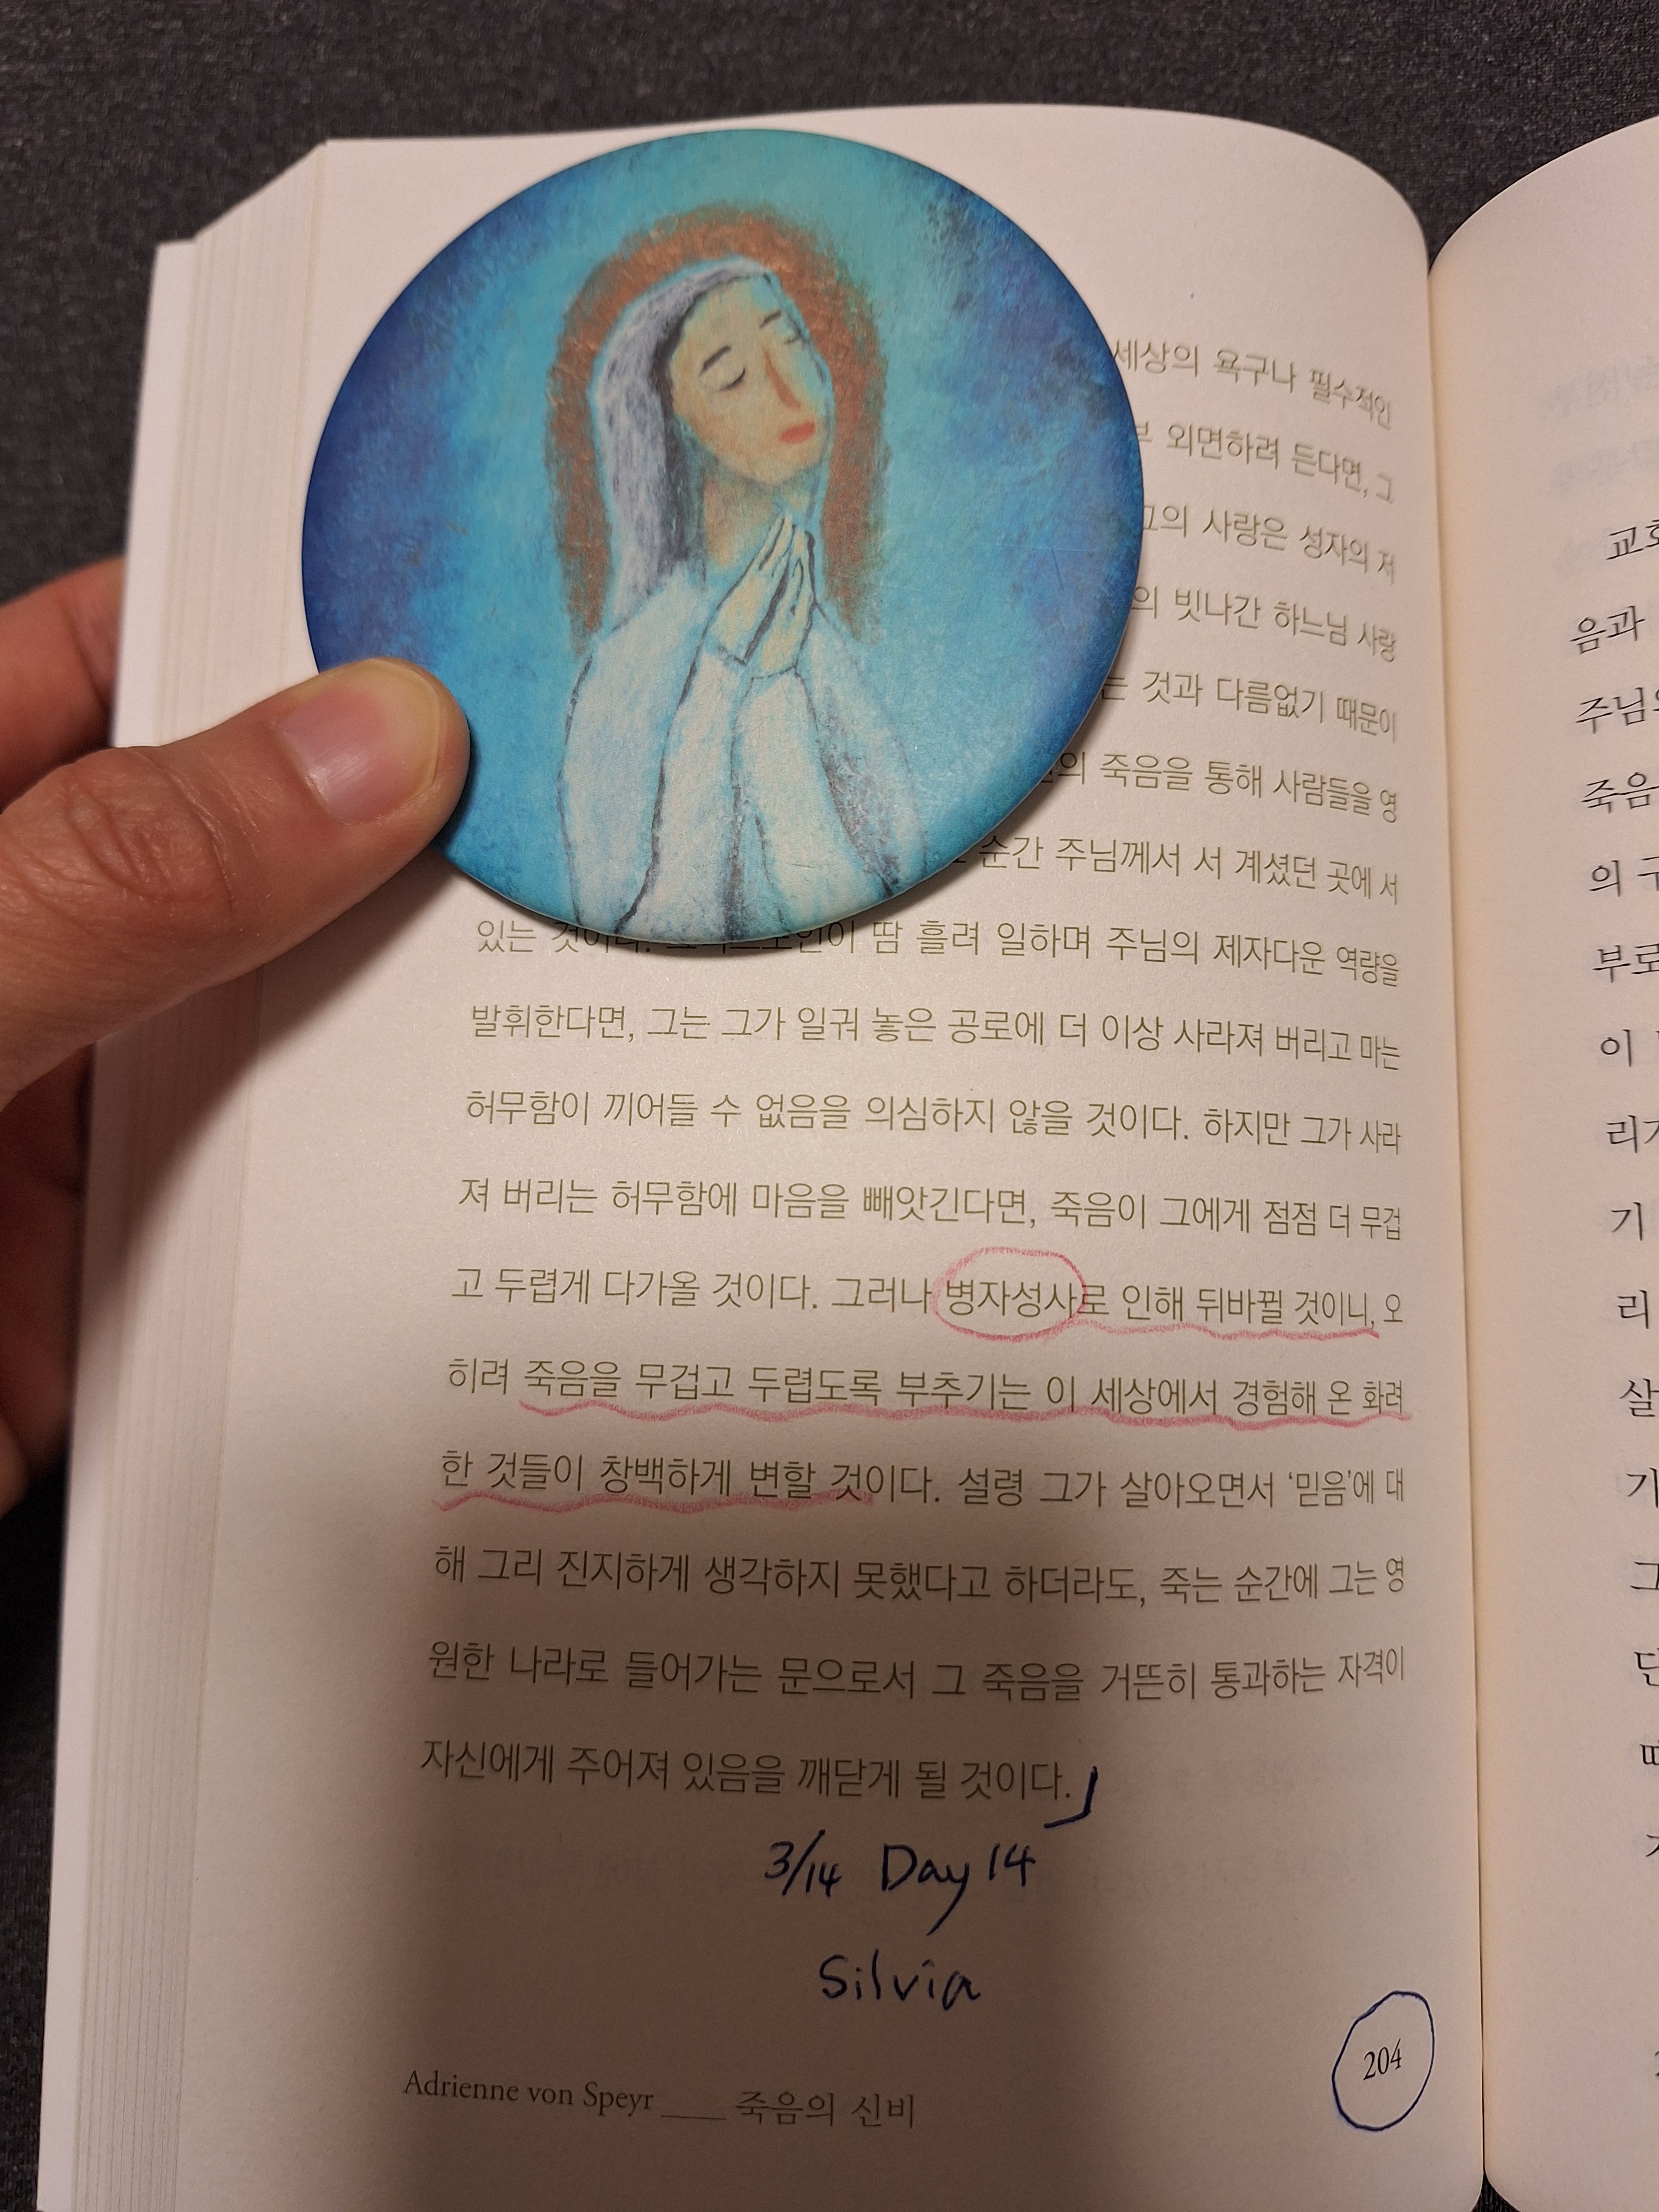 세상의 욕구나 필수적인
외면하려 든다면, 그
그의 사랑은 성자의 저
의 빗나간 하느님 사랑
는 것과 다름없기 때문이
의 죽음을 통해 사람들을 영
순간 주님께서 서 계셨던 곳에 서
있는 것이다. 그리스도인이 땀 흘려 일하며 주님의 제자다운 역량을
발휘한다면, 그는 그가 일궈 놓은 공로에 더 이상 사라져 버리고 마는
허무함이 끼어들 수 없음을 의심하지 않을 것이다. 하지만 그가 사라
져 버리는 허무함에 마음을 빼앗긴다면, 죽음이 그에게 점점 더 무겁
고 두렵게 다가올 것이다. 그러나 병자성사로 인해 뒤바뀔 것이니, 오
히려 죽음을 무겁고 두렵도록 부추기는 이 세상에서 경험해 온 화려
한 것들이 창백하게 변할 것이다. 설령 그가 살아오면서 ‘믿음’에 대
해 그리 진지하게 생각하지 못했다고 하더라도, 죽는 순간에 그는 영
원한 나라로 들어가는 문으로서 그 죽음을 거뜬히 통과하는 자격이
자신에게 주어져 있음을 깨닫게 될 것이다.」
3/14 Day 14
Silvia
204
Adrienne von Speyr ___ 죽음의 신비
교회
음과
주님의
죽음
의 구
부로
이
리가
기
리
살
기
그
단